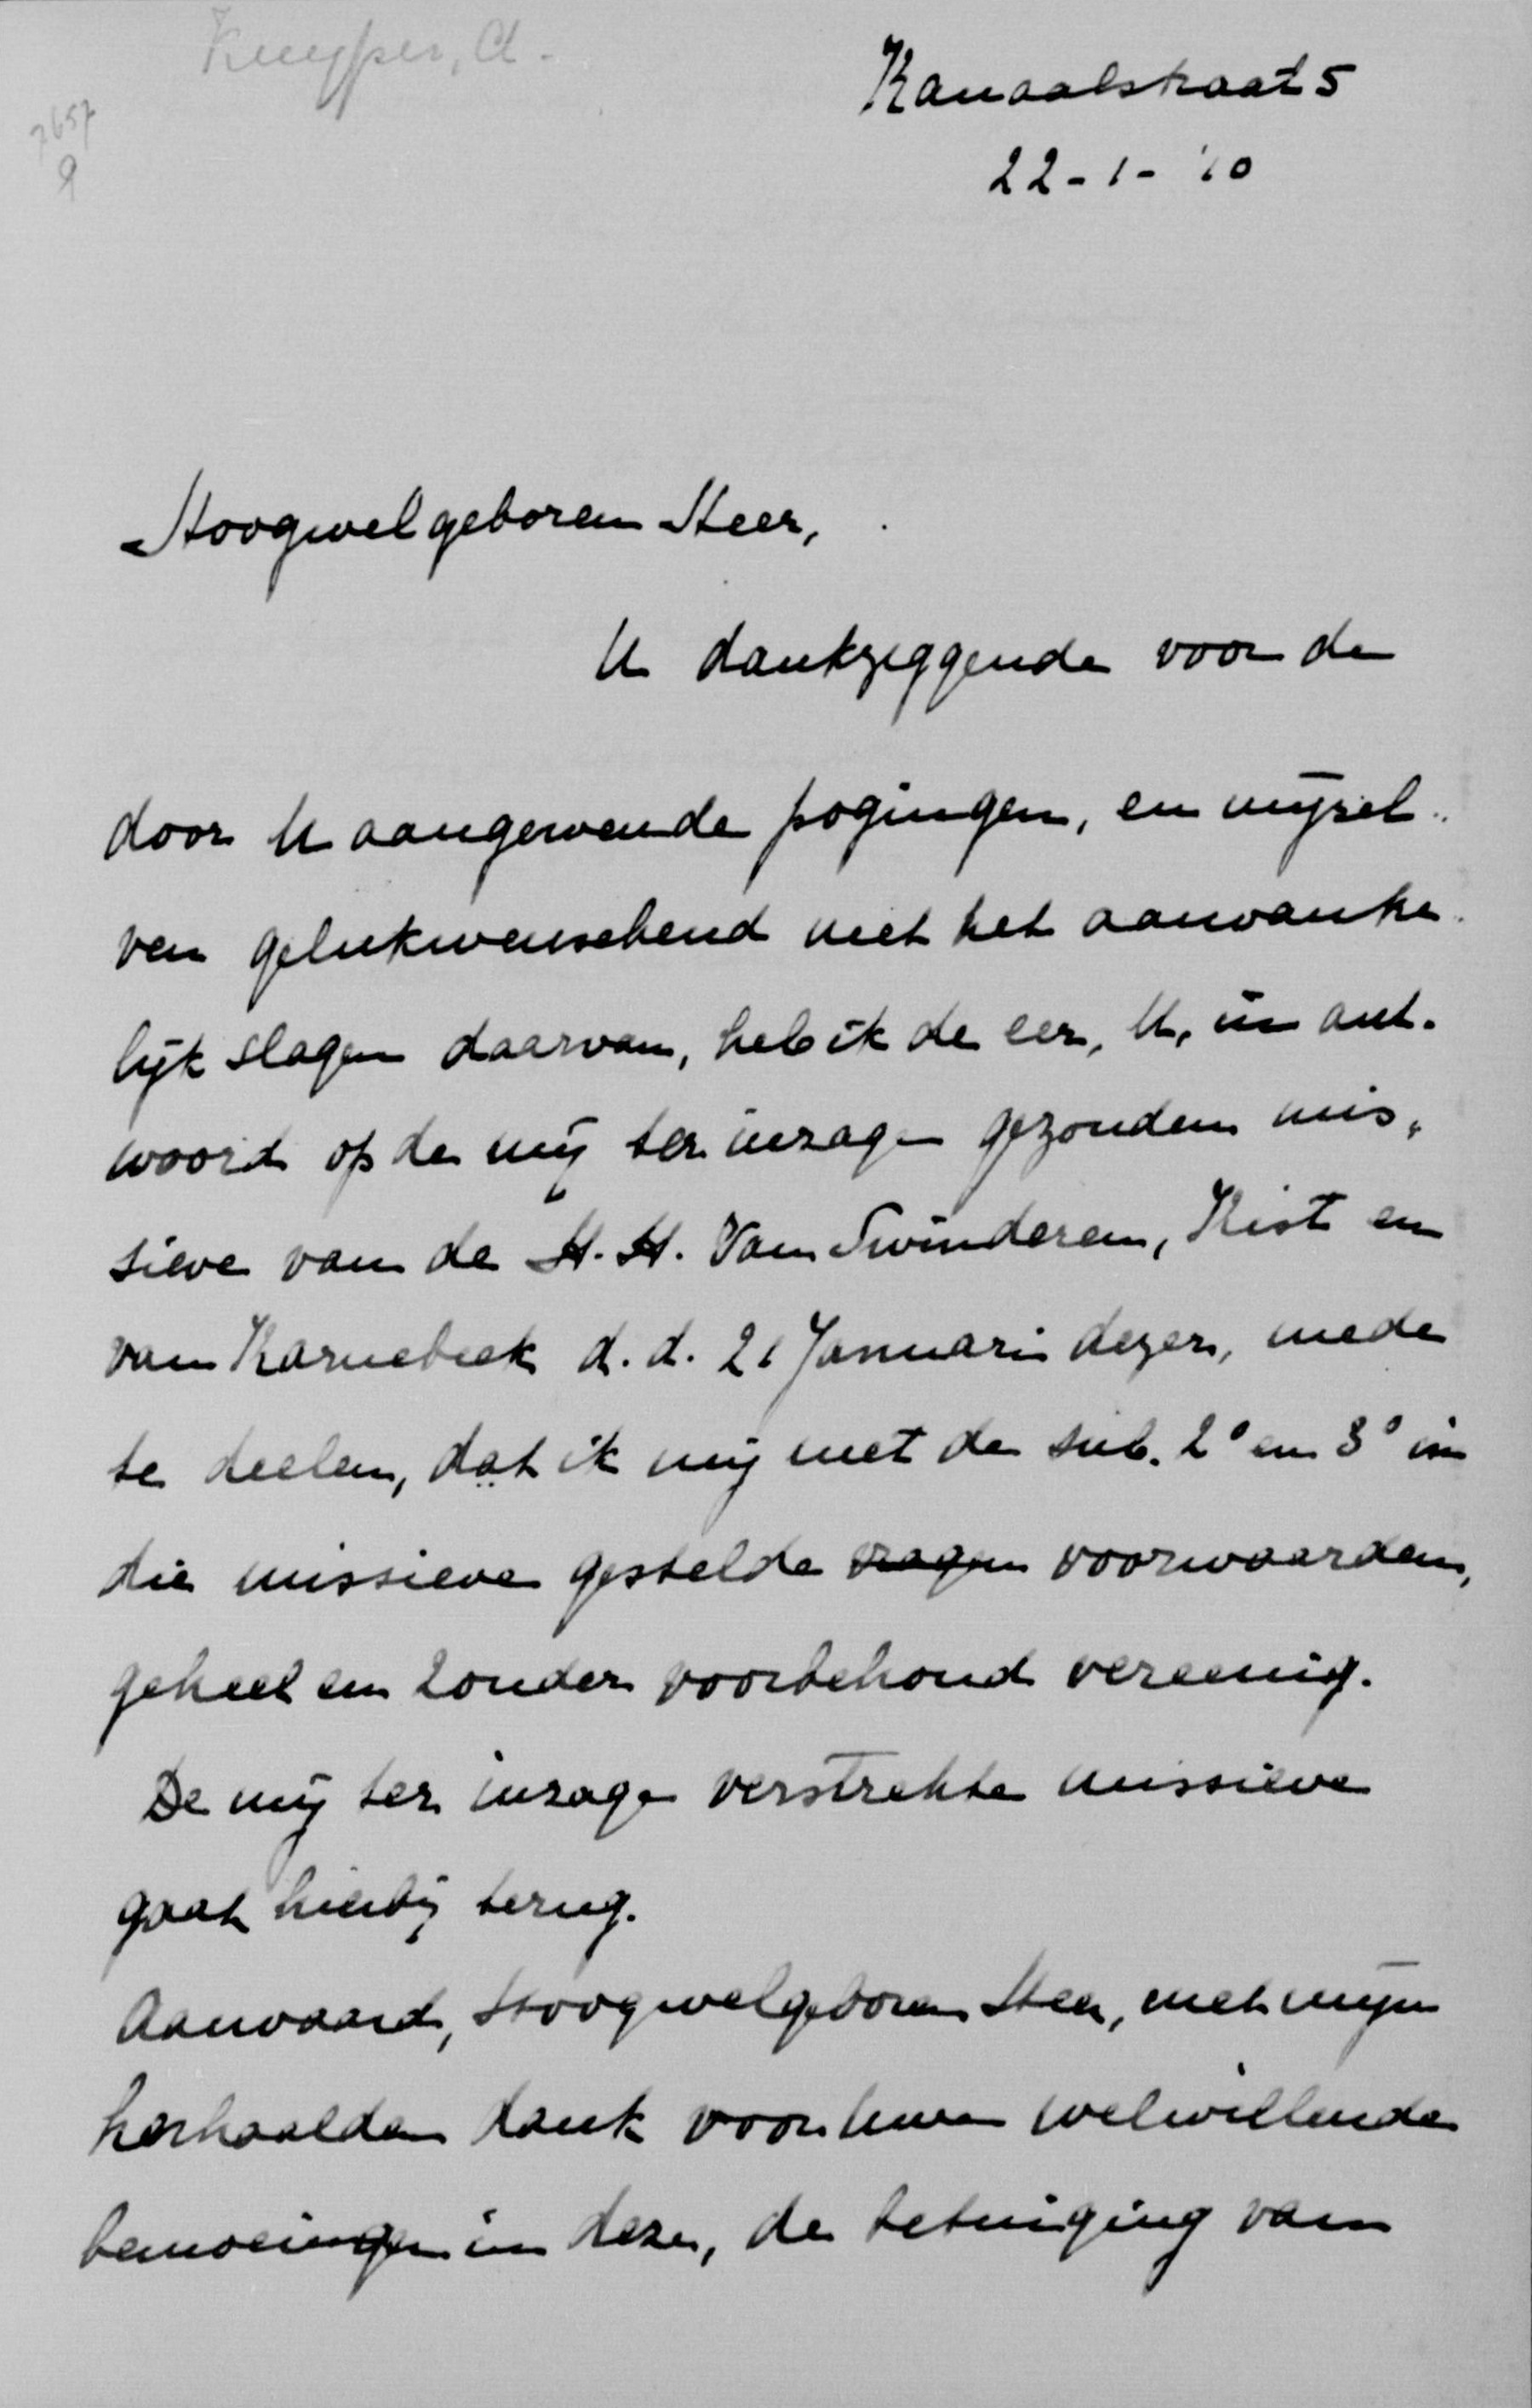 Kuyper, A.
7657
9
Kanaalstraat 5
22-1-'10
Hoogwelgeboren Heer,
U dankzeggende voor de
door U aangewende pogingen, en mijzel-
ven gelukwenschend met het aanvanke-
lijk slagen daarvan, heb ik de eer, U, in ant-
woord op de mij ter inzage gezonden mis-
sieve van de H.H. Van Swinderen, Kist en
van Karnebeek d.d. 21 Januari dezer, mede
te deelen, dat ik mij met de sub. 2° en 3° in
die missieve gestelde vragen voorwaarden,
geheel en zonder voorbehoud vereenig.
De mij ter inzage verstrekte missieve
gaat hierbij terug.
Aanvaard, Hoogwelgeboren Heer, met mijn
herhaalden dank voor uwe welwillende
bemoeiingen in deze, de betuiging van